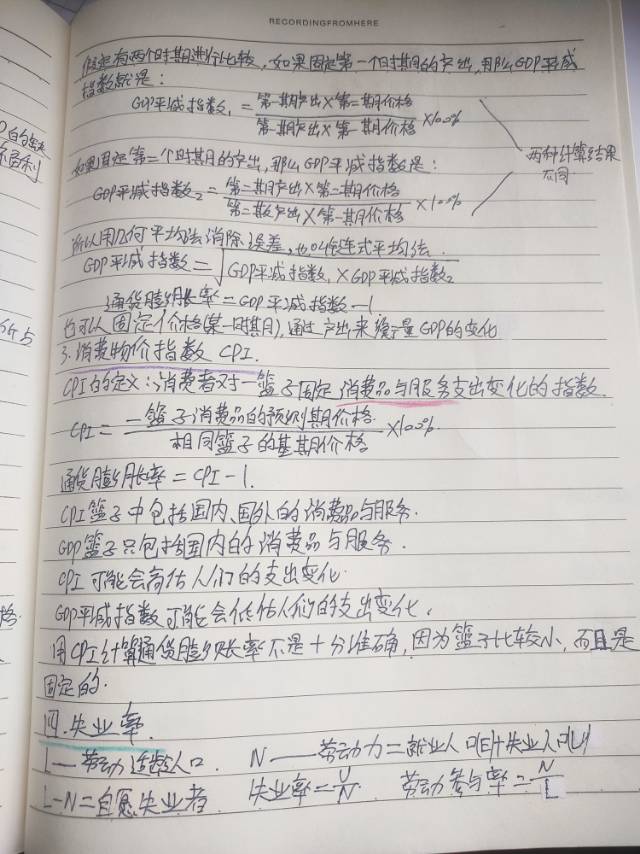 RECORDINGFROMHERE
假定有两个时期进行比较,如果固定第一个时期的产出,那么GDP平减
指数就是:
GDP平减指数₁ = 第一期产出×第二期价格 / 第一期产出×第一期价格 ×100%
两种计算结果
不同
如果固定第二个时期的产出,那么GDP平减指数是:
GDP平减指数₂ = 第二期产出×第二期价格 / 第二期产出×第一期价格 ×100%
所以用几何平均法消除误差,也叫链式平均法.
GDP平减指数=√GDP平减指数₁×GDP平减指数₂
通货膨胀率=GDP平减指数-1
也可以固定价格(某一时期),通过产出来衡量GDP的变化
3.消费物价指数 CPI.
CPI的定义:消费者对一篮子固定消费品与服务支出变化的指数.
CPI= 一篮子消费品的预测期价格 / 相同篮子的基期价格 ×100%
通货膨胀率=CPI-1.
CPI篮子中包括国内、国外的消费品与服务.
GDP篮子只包括国内的消费品与服务.
CPI可能会高估人们的支出变化.
GDP平减指数可能会低估人们的支出变化.
用CPI计算通货膨胀率不是十分准确,因为篮子比较小,而且是
固定的.
四.失业率.
L—劳动适龄人口 N——劳动力=就业人口(E)+失业人口(U)
L-N=自愿失业者 失业率=U/N 劳动参与率=N/L